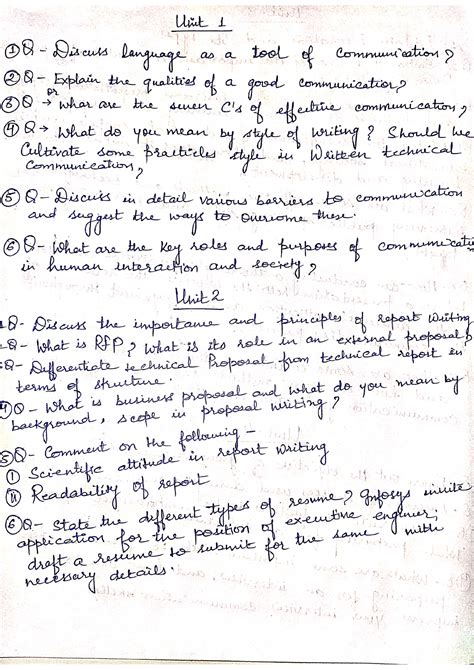 Unit 1
① Q - Discuss language as a tool of communication?
② Q - Explain the qualities of a good communication?
or
③ Q → What are the seven C's of effective communication?
④ Q → What do you mean by style of writing? Should we
cultivate some practicles style in Written technical
Communication?
⑤ Q - Discuss in detail various barriers to communication
and suggest the ways to overcome these.
⑥ Q - What are the key roles and purposes of communicatio
in human interaction and society?
Unit 2
Q - Discuss the importance and principles of report writing
Q - What is RFP? What is its role in an external proposal?
Q - Differentiate technical Proposal from technical report in
terms of structure.
Q - What is business proposal and what do you mean by
background, scope in proposal writing?
⑤ Q - Comment on the following -
(i) Scientific attitude in report writing
(ii) Readability of report
⑥ Q - State the different types of resume? Infosys invite
application for the position of executive engineer,
draft a resume to submit for the same with
necessary details.